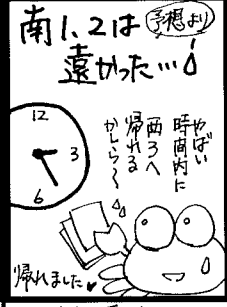 南1,2は予想より
遠かった…
12
3
6
やばい
時間内に
西3へ
帰れる
かしら〜
帰れました♥